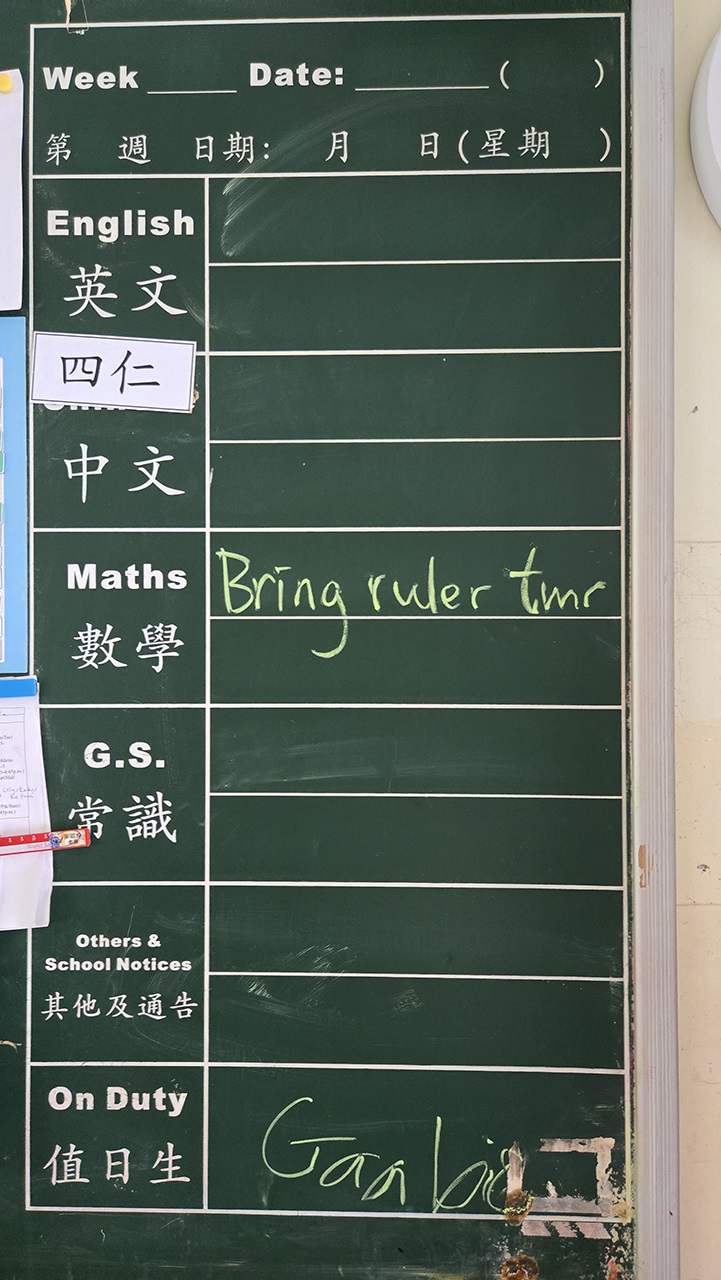 Week ____ Date: ______ ( )
第 週 日期: 月 日(星期 )
English
英文
四仁
中文
Maths
Bring ruler tmr
數學
G.S.
常識
Others &
School Notices
其他及通告
On Duty
值日生